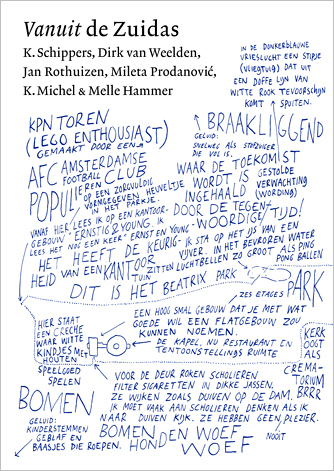 Vanuit de Zuidas
K. Schippers, Dirk van Weelden,
Jan Rothuizen, Mileta Prodanović,
K. Michel & Melle Hammer
IN DE DONKERBLAUWE
VRIESLUCHT EEN STIPJE
(VLIEGTUIG) DAT UIT
EEN DOFFE LIJN VAN
WITTE ROOK TEVOORSCHIJN
KOMT SPUITEN.
KPN TOREN
(LEGO ENTHOUSIAST)
GEMAAKT DOOR EEN
BRAAKLIGGEND
GELUID:
SNELWEG ALS STOFZUIGER
DIE VOL IS.
AFC AMSTERDAMSE
FOOTBALL CLUB
WAAR DE TOEKOMST
WORDT IS
INGEHAALD
GESTOLDE
VERWACHTING
(WORDING)
POPULIEREN
OP EEN ZORGVULDIG
VORMGEGEVEN HEUVELTJE
IN HET PARKJE.
DOOR DE TEGEN-
WOORDIGE TIJD!
VANAF HIER LEES IK OP EEN KANTOOR-
GEBOUW ERNSTIG & YOUNG. IK
LEES HET NOG EEN KEER "ERNST EN YOUNG"
IK STA OP HET IJS VAN EEN
VIJVER. IN HET BEVROREN WATER
ZITTEN LUCHTBELLEN ZO GROOT ALS PING
PONG BALLEN
HET HEEFT DE KEURIG-
HEID VAN EEN KANTOOR
TUIN
DIT IS HET BEATRIX PARK
PARK
ZES ETAGES
HIER STAAT
EEN CRECHE
WAAR WITTE
KINDJES MET
HOUTEN
SPEELGOED
SPELEN
EEN HOOG SMAL GEBOUW DAT JE MET WAT
GOEDE WIL EEN FLATGEBOUW ZOU
KUNNEN NOEMEN.
DE KAPEL, NU RESTAURANT EN
TENTOONSTELLINGS RUIMTE
KERK
OOGT
ALS
CREMA-
TORIUM
BRRR
VOOR DE DEUR ROKEN SCHOLIEREN
FILTER SIGARETTEN IN DIKKE JASSEN.
ZE WIJKEN ZOALS DUIVEN OP DE DAM.
IK MOET VAAK AAN SCHOLIEREN DENKEN ALS IK
NAAR DUIVEN KIJK. ZE HEBBEN GEEN PLEZIER.
NOOIT
BOMEN
GELUID:
KINDERSTEMMEN
GEBLAF EN
BAASJES DIE ROEPEN.
BOMEN EN WOEF
HONDEN WOEF